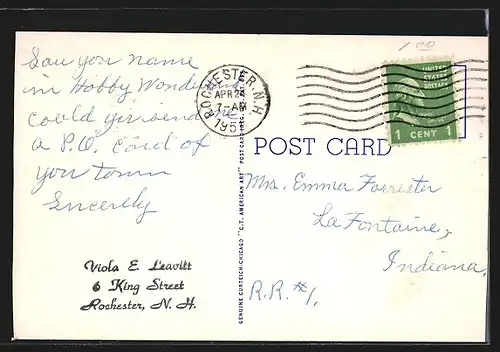 Saw you name
in Hobby
could you send me
a P.O. card of
you town
Sincerely
Viola E. Leavitt
6 King Street
Rochester, N. H.
GENUINE CURTEICH-CHICAGO "C.T. AMERICAN ART" POST CARD
1 00
ROCHESTER, N.H.
APR 24
7-AM
195
UNITED
STATES
POSTAGE
1 CENT 1
POST CARD
Mrs. Emma Forrester
La Fontaine,
Indiana.
R.R. #1,